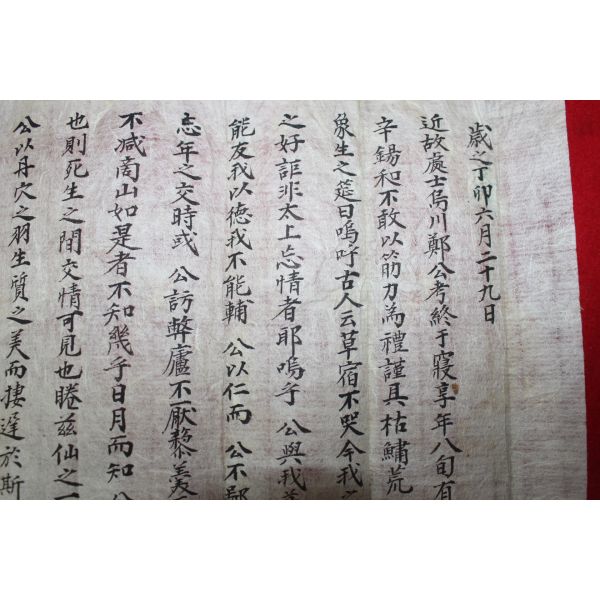 歲之丁卯六月二十九日
近故處士烏川鄭公考終于寢享年八旬有
辛錫和不敢以筋力為禮謹具枯鱐荒
象生之筵曰嗚呼古人云草宿不哭今我
之好詎非太上忘情者耶嗚乎 公與我
能友我以德我不能輔 公以仁而 公不鄙
忘年之交時或 公訪弊廬不厭藜羹
不减商山如是者不知幾乎日月而知
也則死生之間交情可見也睠玆仙之一
公以丹穴之羽生質之美而棲遲於斯